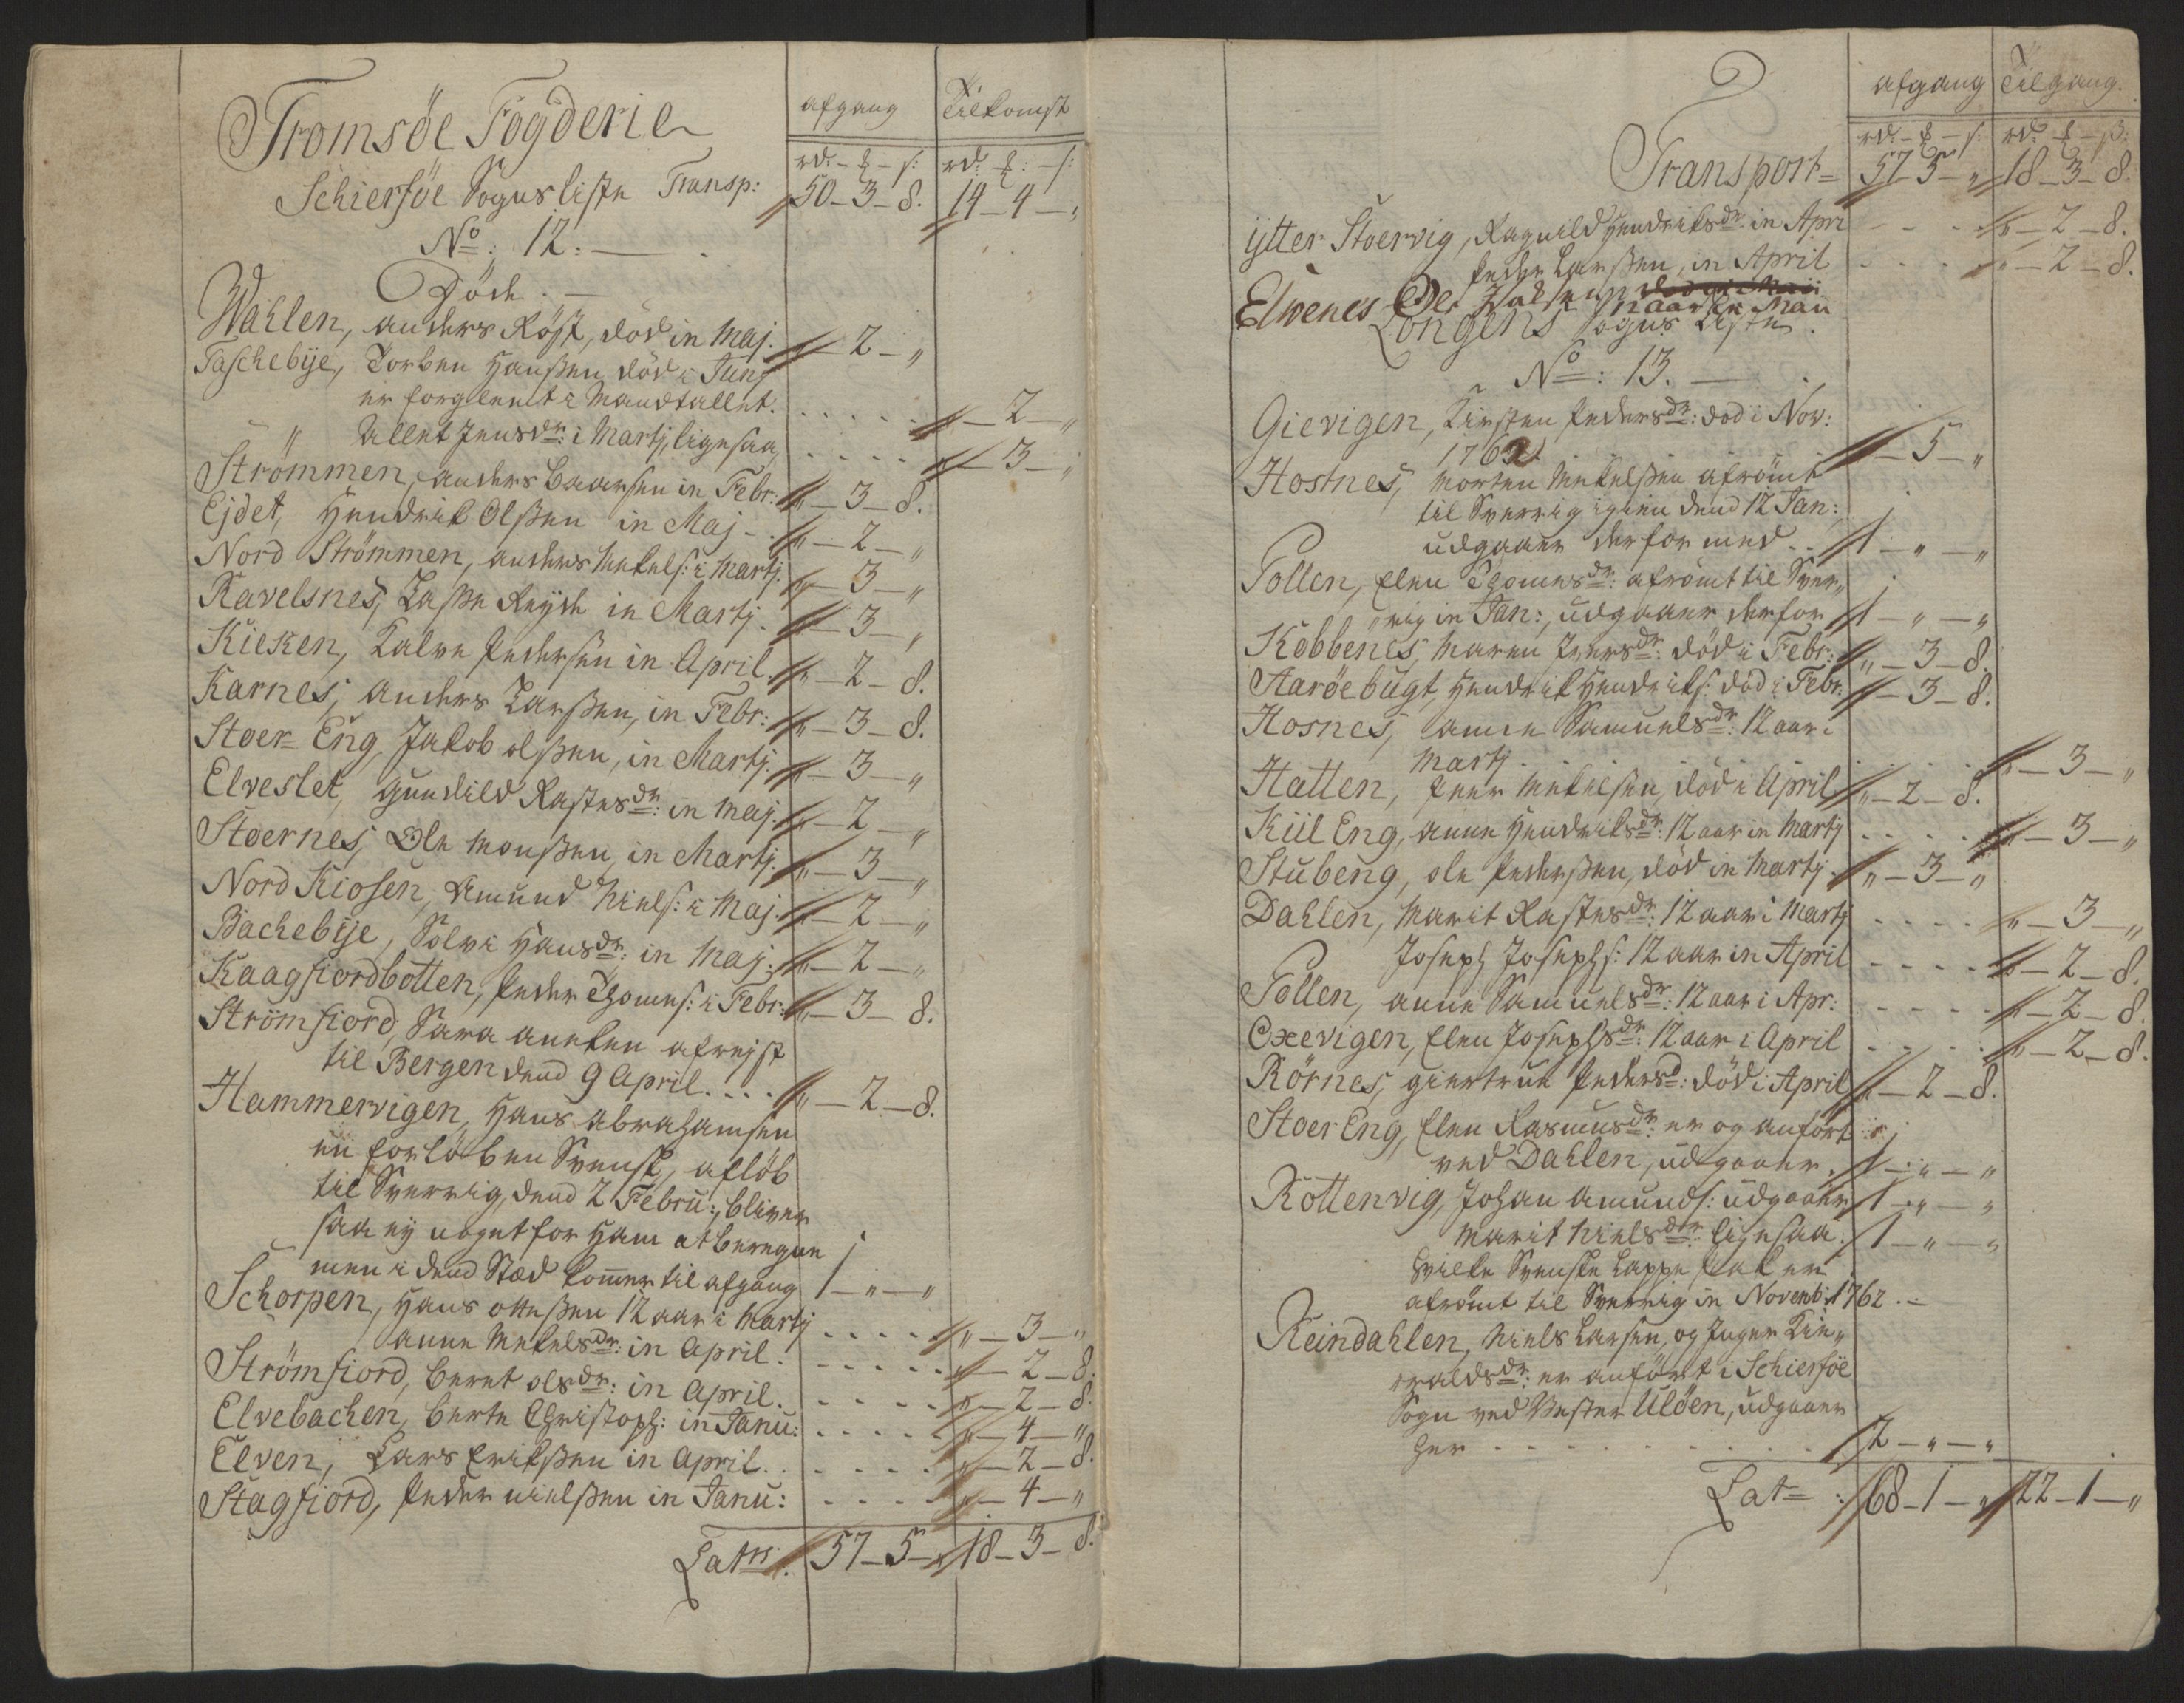 Tromsöe Fogderie
afgang Tilkomst
rd: - ₰ - s: rd: ₰: - s:
Schiersöe Sogns liste Transp: 50-3-8. 14-4-"
No: 12:
Döde.
Wahlen, anders Röst, död in Maj. "-2-"
Taschebÿe, Torben Hanßen död i Junj
er forglemt i Mandtallet. ..... "-2-"
" Allet Jensdr: i Martj, ligesaa, ..... "-3-"
Strömmen, anders Baarsen in Febr: "-3-8.
Ejdet, Hendrik Olßen in Maj - "-2-"
Nord Strömmen, anders Mikels: i Martj. "-3-"
Ravelsnes, Laße in Martj. "-3-"
Kieken, Kalve Pedersen in April. "-2-8.
Karnes, Anders Larßen, in Febr: "-3-8.
Stoer-Eng, Jakob olßen, in Martj. "-3-"
Elveslet, gunhild Rastesdr: in Maj. "-2-"
Stoernes, Ole Monßen, in Martj. "-3-"
Nord Kiosen, Amund Niels: i Maj. "-2-"
Bachebÿe, Solvi Hansdr: in Maj. "-2-"
Kaagfiordbotten, Peder Thomes: i Febr: "-3-8.
Strömfiord, Sara aneken afrejst
til Bergen dend 9 April.... "-2-8.
Hammervigen, Hans Abrahamsen
en forlöben Svensk, aflöb
til Sverrig, dend 2 Febru:, bliver
saa ej noget for Ham at beregne
men i dend Stæd komer til afgang 1-"-"
Schorpen, Hans otteßen 12 aar i Martj ..... "-3-"
anne Mikelsdr: in April. ..... "-2-8.
Strömfiord, Beret olsdr: in April. ..... "-2-8.
Elvebachen, Berte Christoph: in Janu: ..... "-4-"
Elven, Lars Erikßen in April. ..... "-2-8.
Stagfiord, Peder nielßen in Janu: ..... "-4-"
Lats: 57-5-" 18-3-8.
afgang Tilgang.
rd: - ₰ - s: rd: ₰ - ß:
Transport= 57 5-" 18-3-8.
ÿtter Stoervig, Ragnild Hendriksdr: in Apri .... "-2-8.
Peder Larßen, in April .... "-2-8.
Elvenes naar in Maii
Longens Sogns Liste.
No: 13.
Gievigen, Kirsten Pedersdr: död i Nov:
1762. "-5-"
Hostnes, Morten Mikelßen afrömt
til Sverrig igien dend 12 Jan:
udgaaer derfor med .. 1-"-"
Pollen, Elen Thomesdr: afrömt til Sver„
„rig in Jan:, udgaaer derfor 1-"-"
Kobbenes, Maren Iversdr: död i Febr: "-3-8.
Aaröebugt, Hendrik Hendriks: död i Febr. "-3-8.
Hosnes, anne Samuelsdr: 12 aar i
Martj. .... "-3-"
Hatten, Peer Mikelsen, död i April "-2-8.
Kiil Eng, anne Hendriksdr: 12 aar in Martj .... "-3-"
Stubeng, ole Pederßen, död in Martj. "-3-"
Dahlen, Marit Rastesdr: 12 aar i Martj .... "-3-"
Joseph Josephs: 12 aar in April .... "-2-8.
Pollen, anne Samuelsdr: 12 aar i Apr: .... "-2-8.
Oxevigen, Elen Josephsdr: 12 aar i April .... "-2-8.
Rörnes, giertrue Pedersd: död i April "-2-8.
Stoer Eng, Elen Rasmusdr: er og anfört
ved Dahlen, udgaaer. 1-"-"
Rottenvig, Johan Amunds: udgaaer 1-"-"
Marit Nielsdr: ligesaa. 1-"-"
hvilke Svenske Lappe Folk er
afrömt til Sverrig in Novemb: 1762.
Reindahlen, Niels Larsen, og Inger Kie„
„raldsdr: er anfört i Schiersöe
Sogn ved Vester Ulöen, udgaaer
her .......... 2-"-"
Lat=: 68-1-" 22-1-"